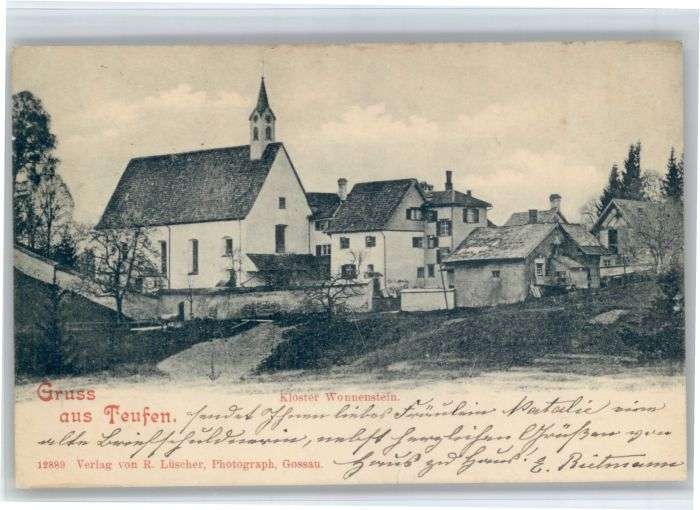 Kloster Wonnenstein.
Gruss
aus Teufen.
sendet Ihnen liebes Fräulein Natalie eine
alte Briefschuldnerin, nebst herzlichen Grüßen von
Haus zu Haus! E. Rietmann
12889 Verlag von R. Lüscher, Photograph, Gossau.